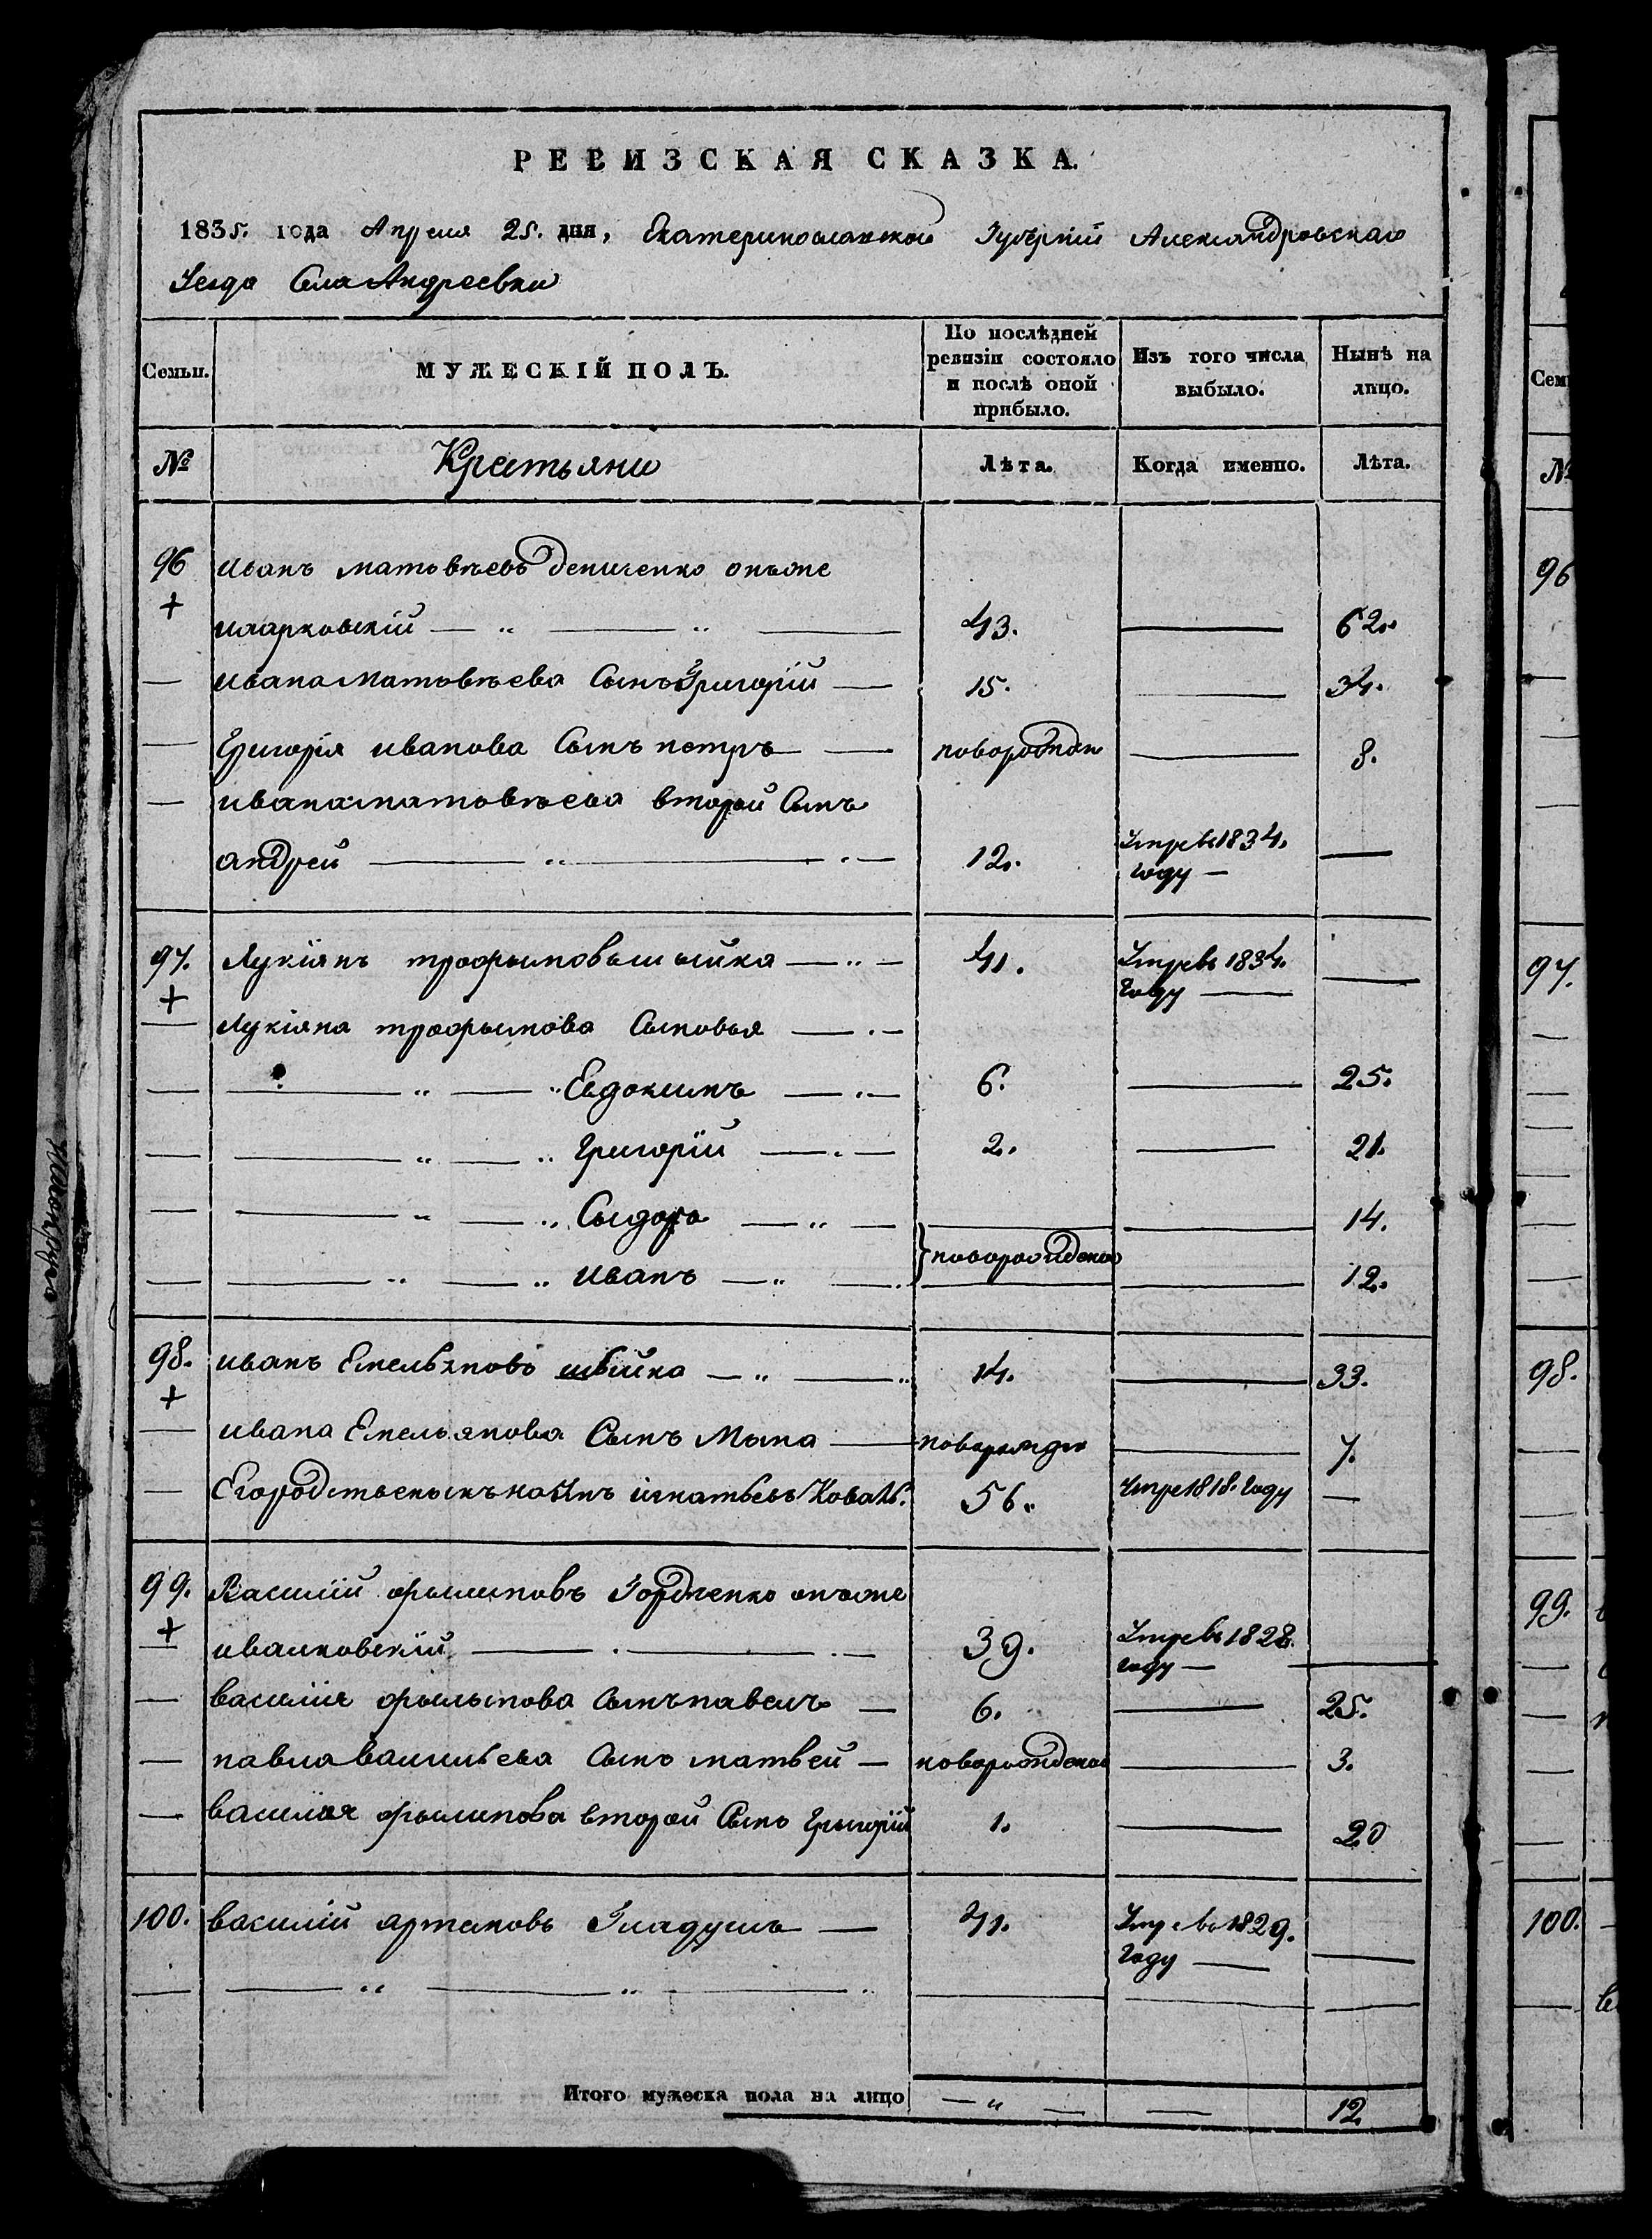 РЕВИЗСКАЯ СКАЗКА.
1835. года Апреля 25. дня, Екатеринославской Губернiи Александровскаго
Уезда Села Андреевки
Семьи. МУЖЕСКIЙ ПОЛЪ. По послѣдней ревизiи состояло и послѣ оной прибыло. Изъ того числа выбыло. Нынѣ на лицо.
№ Крестьяне Лѣта. Когда именно. Лѣта.
96 иванъ матовѣевъ онъже
+ 43. 62.
ивана матовѣева Сынъ Григорiй 15. 34.
Григорiя иванова Сынъ петръ 8.
ивана матовѣева второй Сынъ
андрей 12. Умре въ 1834.
году
97. Лукiянъ трофымовъ шыйка 41. Умре въ 1834.
+ году
Лукiяна трофымова Сыновья
Евдокимъ 6. 25.
Григорiй 2. 21.
Сыдоръ 14.
новорожденые
Иванъ 12.
98. иванъ Емельяновъ шыйка 14. 33.
+
ивана Емельянова Сынъ Мына новорожден 7.
игнатьевъ Коваль. 56. Умре 1818. году
99. Василiй фылиповъ Гордiенко онъже
+ ивашковскiй 39. Умре въ 1828.
году
василiя фылыпова Сынъ павелъ 6. 25.
павла васильева Сынъ матвей новорожденой 3.
василiя фылипова второй Сынъ Грыгорiй 1. 20
100. василiй артемовъ Гладушъ 41. Умре въ 1829.
году
Итого мужеска пола на лицо 12
96
97.
98.
99.
100.